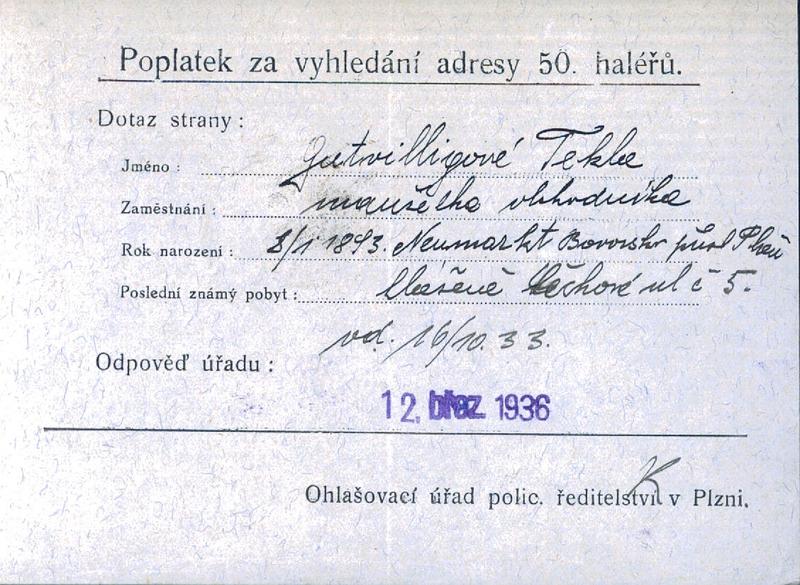 Poplatek za vyhledání adresy 50. haléřů.
Dotaz strany:
Jméno: Gutvilligové Tekla
Zaměstnání: manželka obchodníka
Rok narození: 8/1 1893. Neumarkt Bavorsko přísl Plzeň
Poslední známý pobyt: ul č 5.
vd. 16/10. 33.
Odpověď úřadu:
12. břez. 1936
Ohlašovací úřad polic. ředitelství v Plzni.